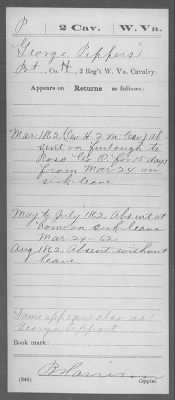 P 2 Cav. W. Va.
George Peppers
Pvt, Co. H, 2 Reg't W. Va. Cavalry.
Appears on Returns as follows:
Mar 1862 Co. H. 2 Va Cav Ab
sent on furlough to
Ross Co O. for 15 days
from Mar 24 on
sick leave
May & July 1862 Absent at
home on sick leave
Mar 24-62
Aug 1862 Absent without
leave
Name appears also as
George Peppert
Book mark:
(546)
Copyist.